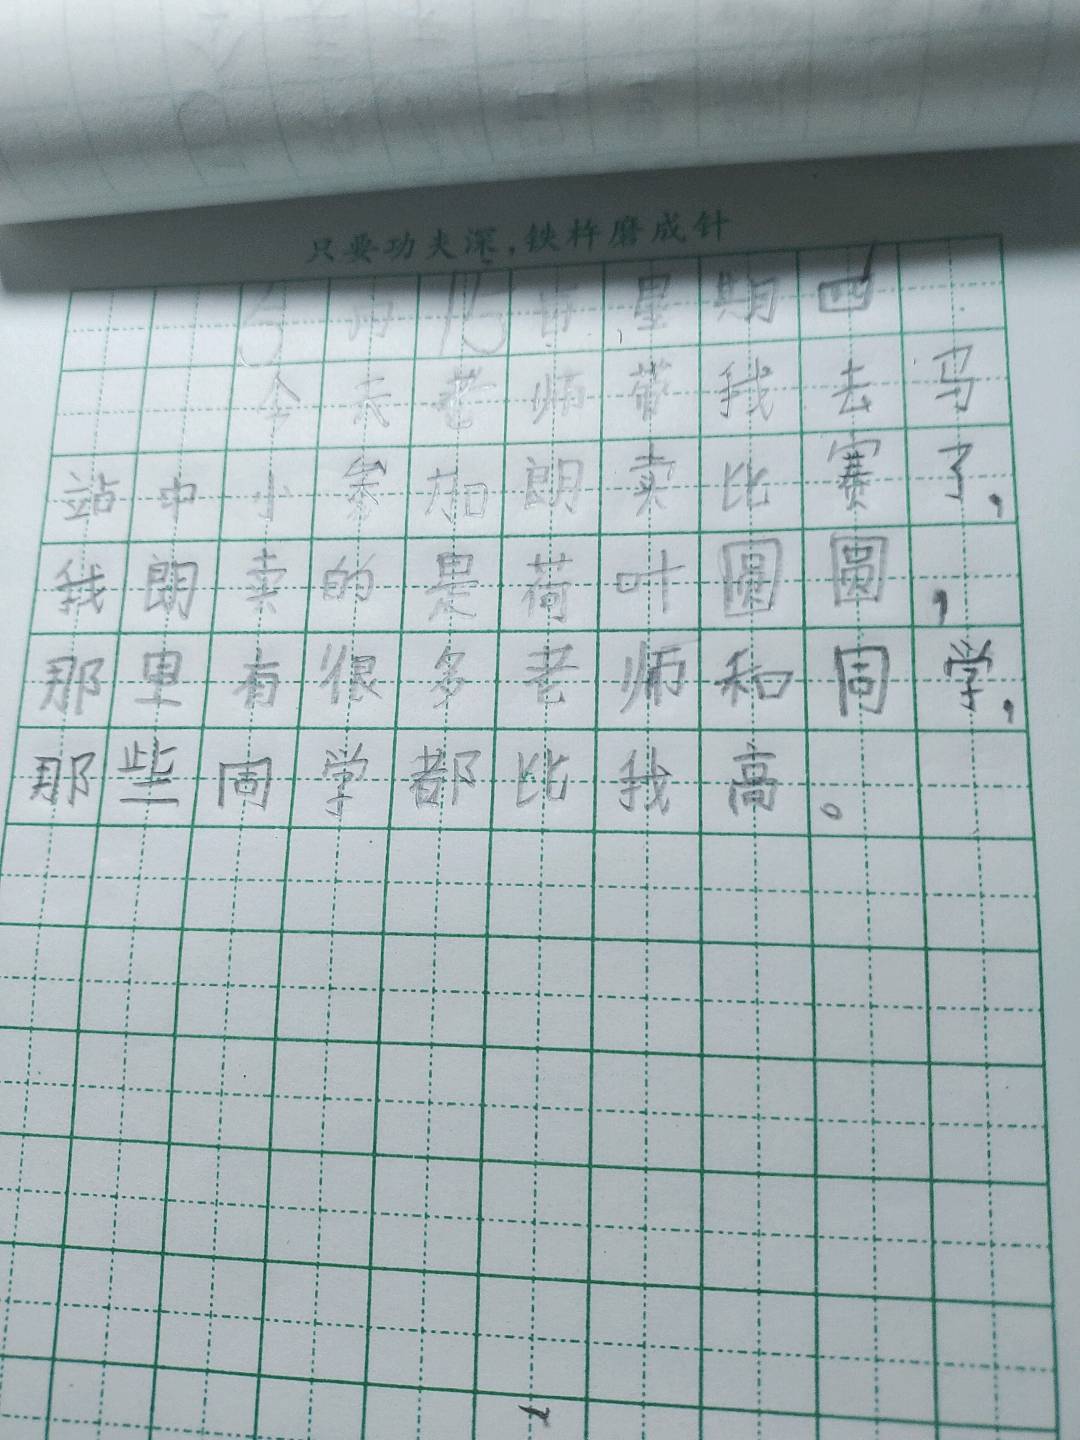 只要功夫深,铁杵磨成针
6月15日星期四
今天老师带我去马
站中小参加朗卖比赛了,
我朗卖的是荷叶圆圆,
那里有很多老师和同学,
那些同学都比我高。